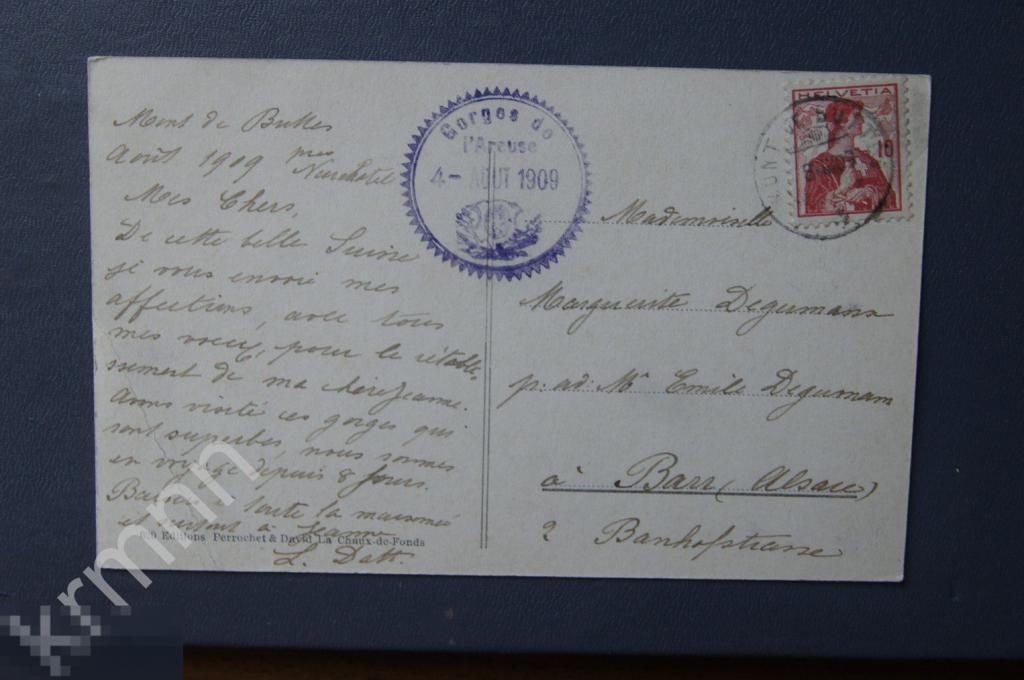 Mont de Buttes
Août 1909 près
Neuchatel
Mes Chers,
De cette belle Suisse
je vous envoie mes
affections, avec tous
mes voeux, pour le rétablis-
sement de ma chère Jeanne.
Avons visité ces gorges qui
sont superbes, nous sommes
en voyage depuis 8 jours.
Baisers à toute la maisonnée
et surtout à Jeanne
L. Datt.
Editions Perrochet & David La Chaux-de-Fonds
Gorges de
l'Areuse
4 - AOUT 1909
HELVETIA
10
MONT DE BUTTES
Mademoiselle
Marguerite Degumann
p: ad: Mr Emile Degumann
à Barr (Alsace)
2 Banhofstrasse
krmnn